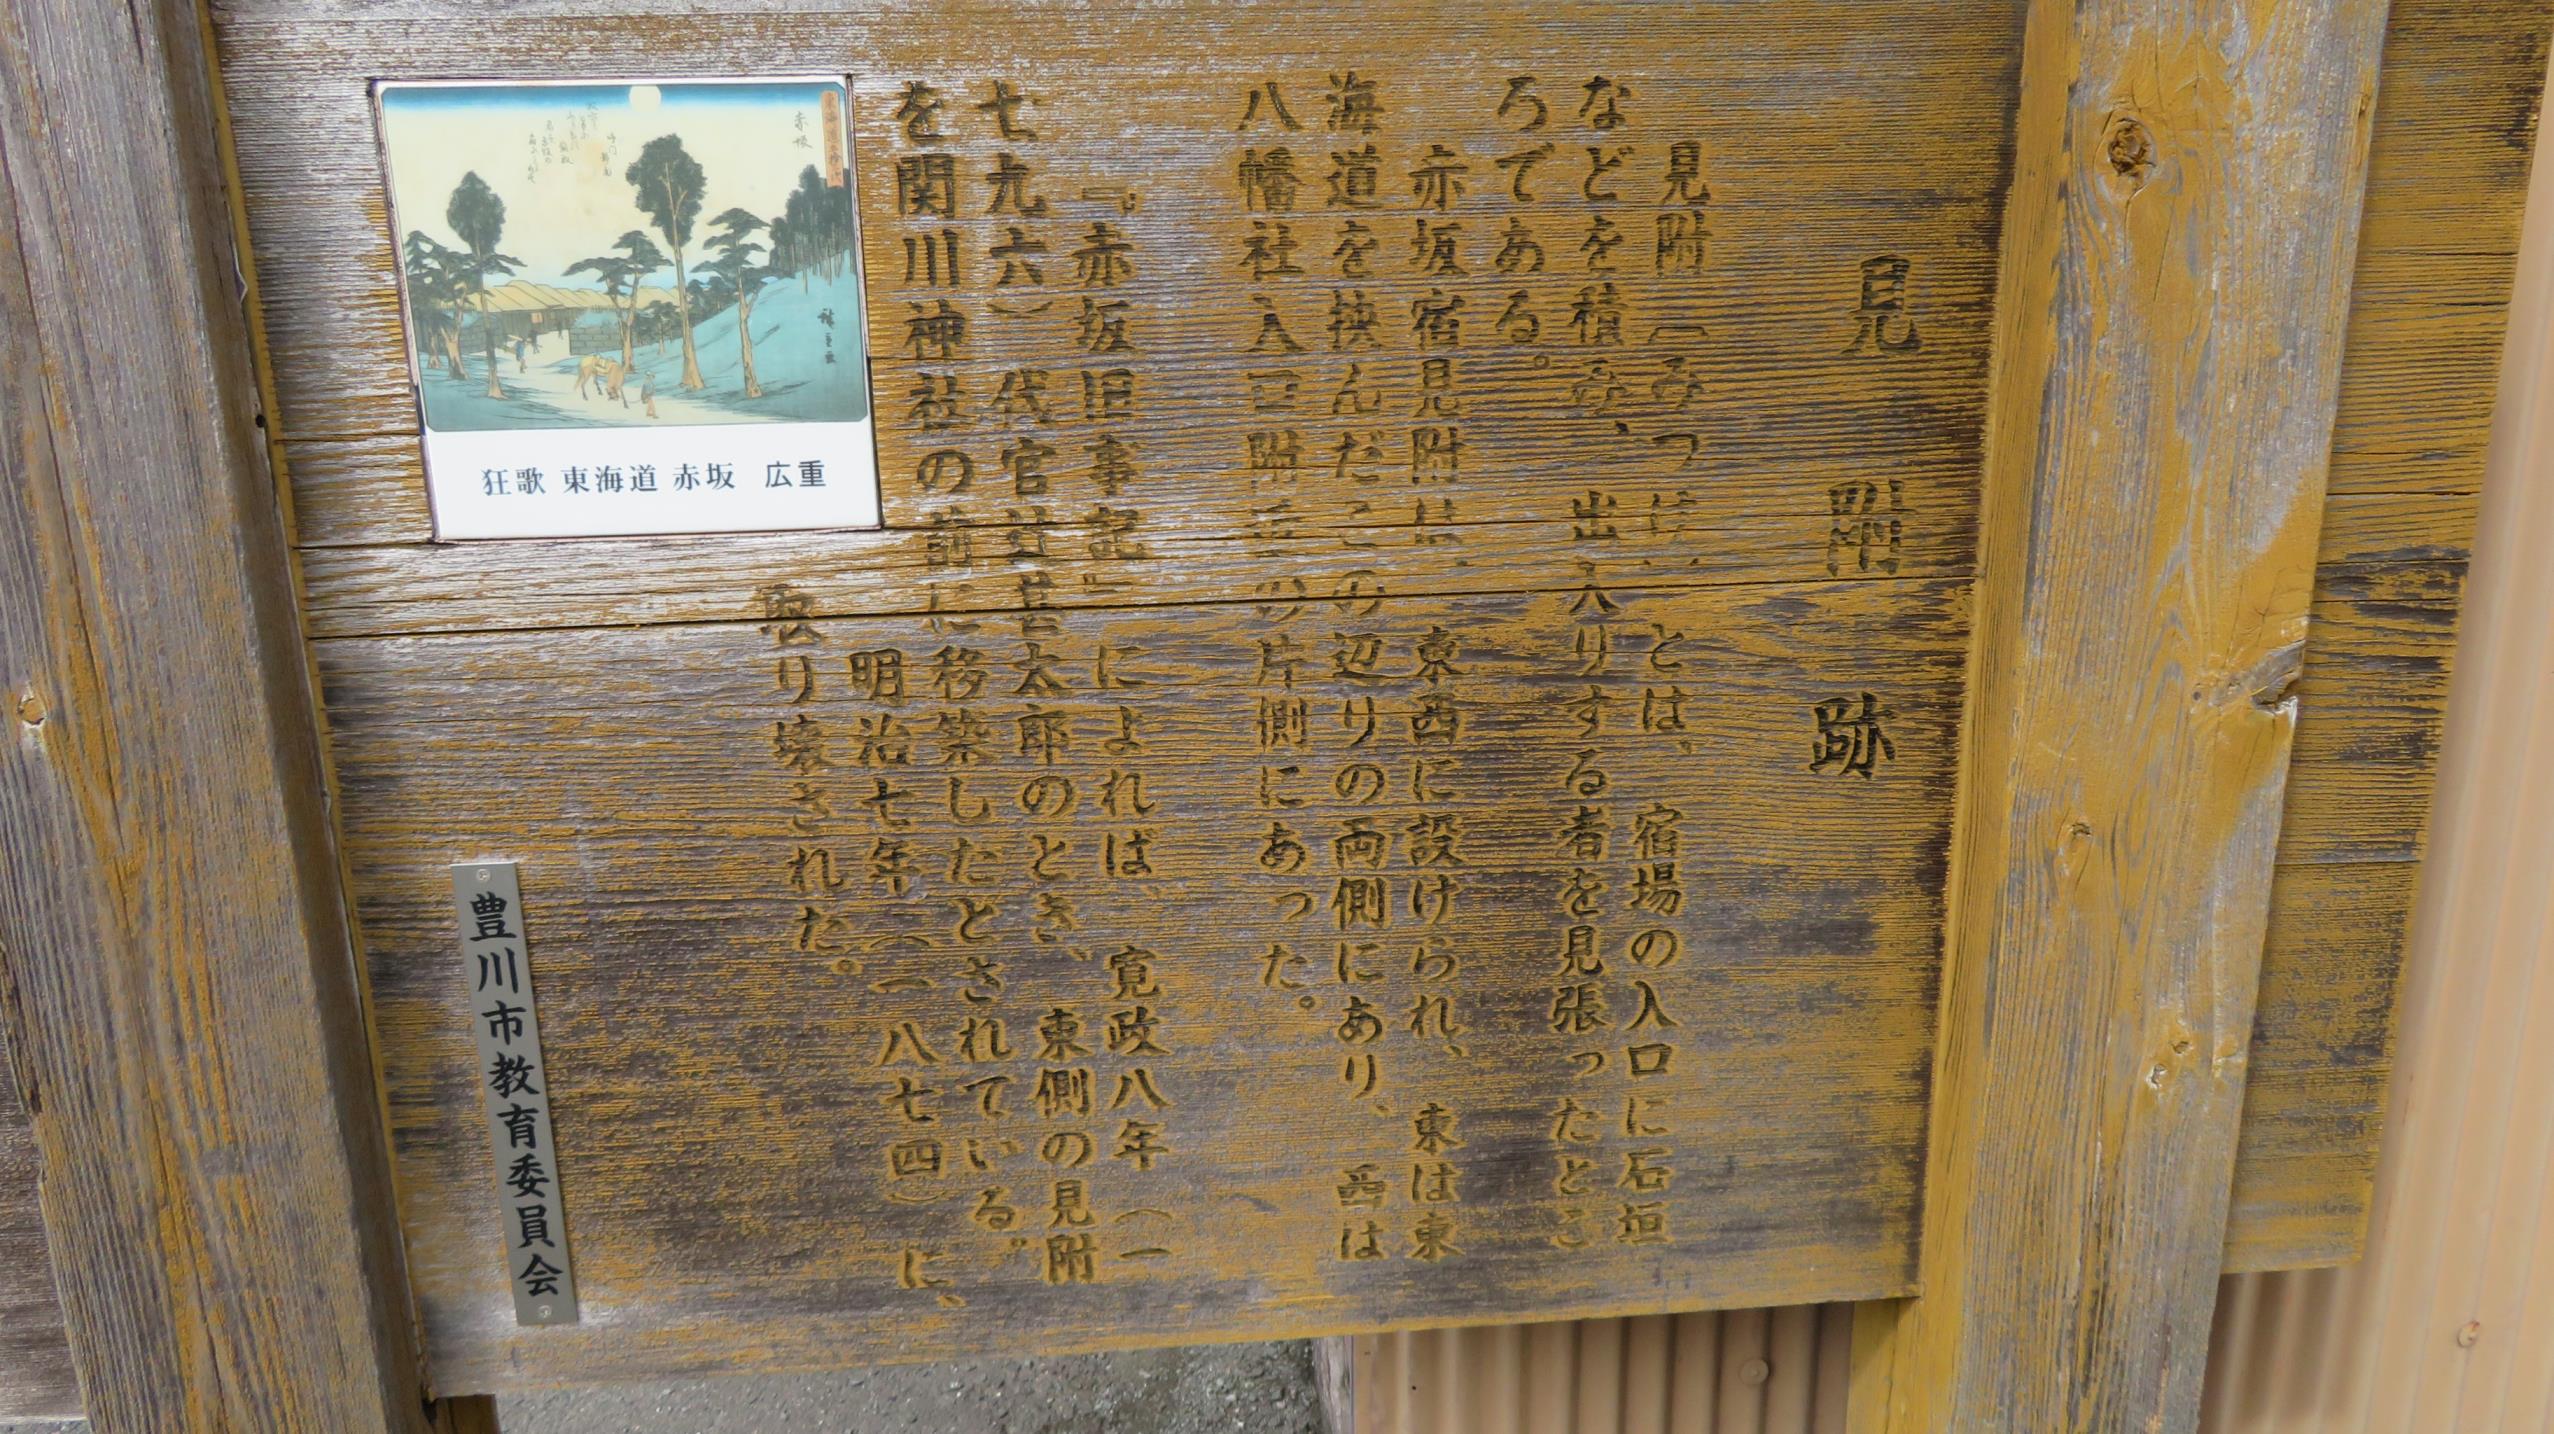 見附跡
見附(みつけ)とは、宿場の入口に石垣
などを積み、出入りする者を見張ったとこ
ろである。
赤坂宿見附は、東西に設けられ、東は東
海道を挟んだこの辺りの両側にあり、西は
八幡社入口附近の片側にあった。
『赤坂旧事記』によれば、寛政八年(一
七九六)代官辻甚太郎のとき、東側の見附
を関川神社の前に移築したとされている。
明治七年(一八七四)に、
取り壊された。
赤坂
狂歌 東海道 赤坂 広重
豊川市教育委員会